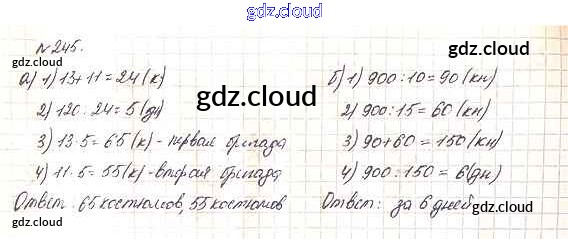 gdz.cloud
№245.
gdz.cloud
gdz.cloud
а) 1) 13+11=24(к)
2) 120:24=5(дн)
3) 13·5=65(к)-первая бригада
4) 11·5=55(к)-вторая бригада
Ответ: 65 костюмов, 55 костюмов
gdz.cloud
б) 1) 900:10=90(кн)
2) 900:15=60(кн)
3) 90+60=150(кн)
4) 900:150=6(дн)
Ответ: за 6 дней
gdz.cloud
gdz.cloud